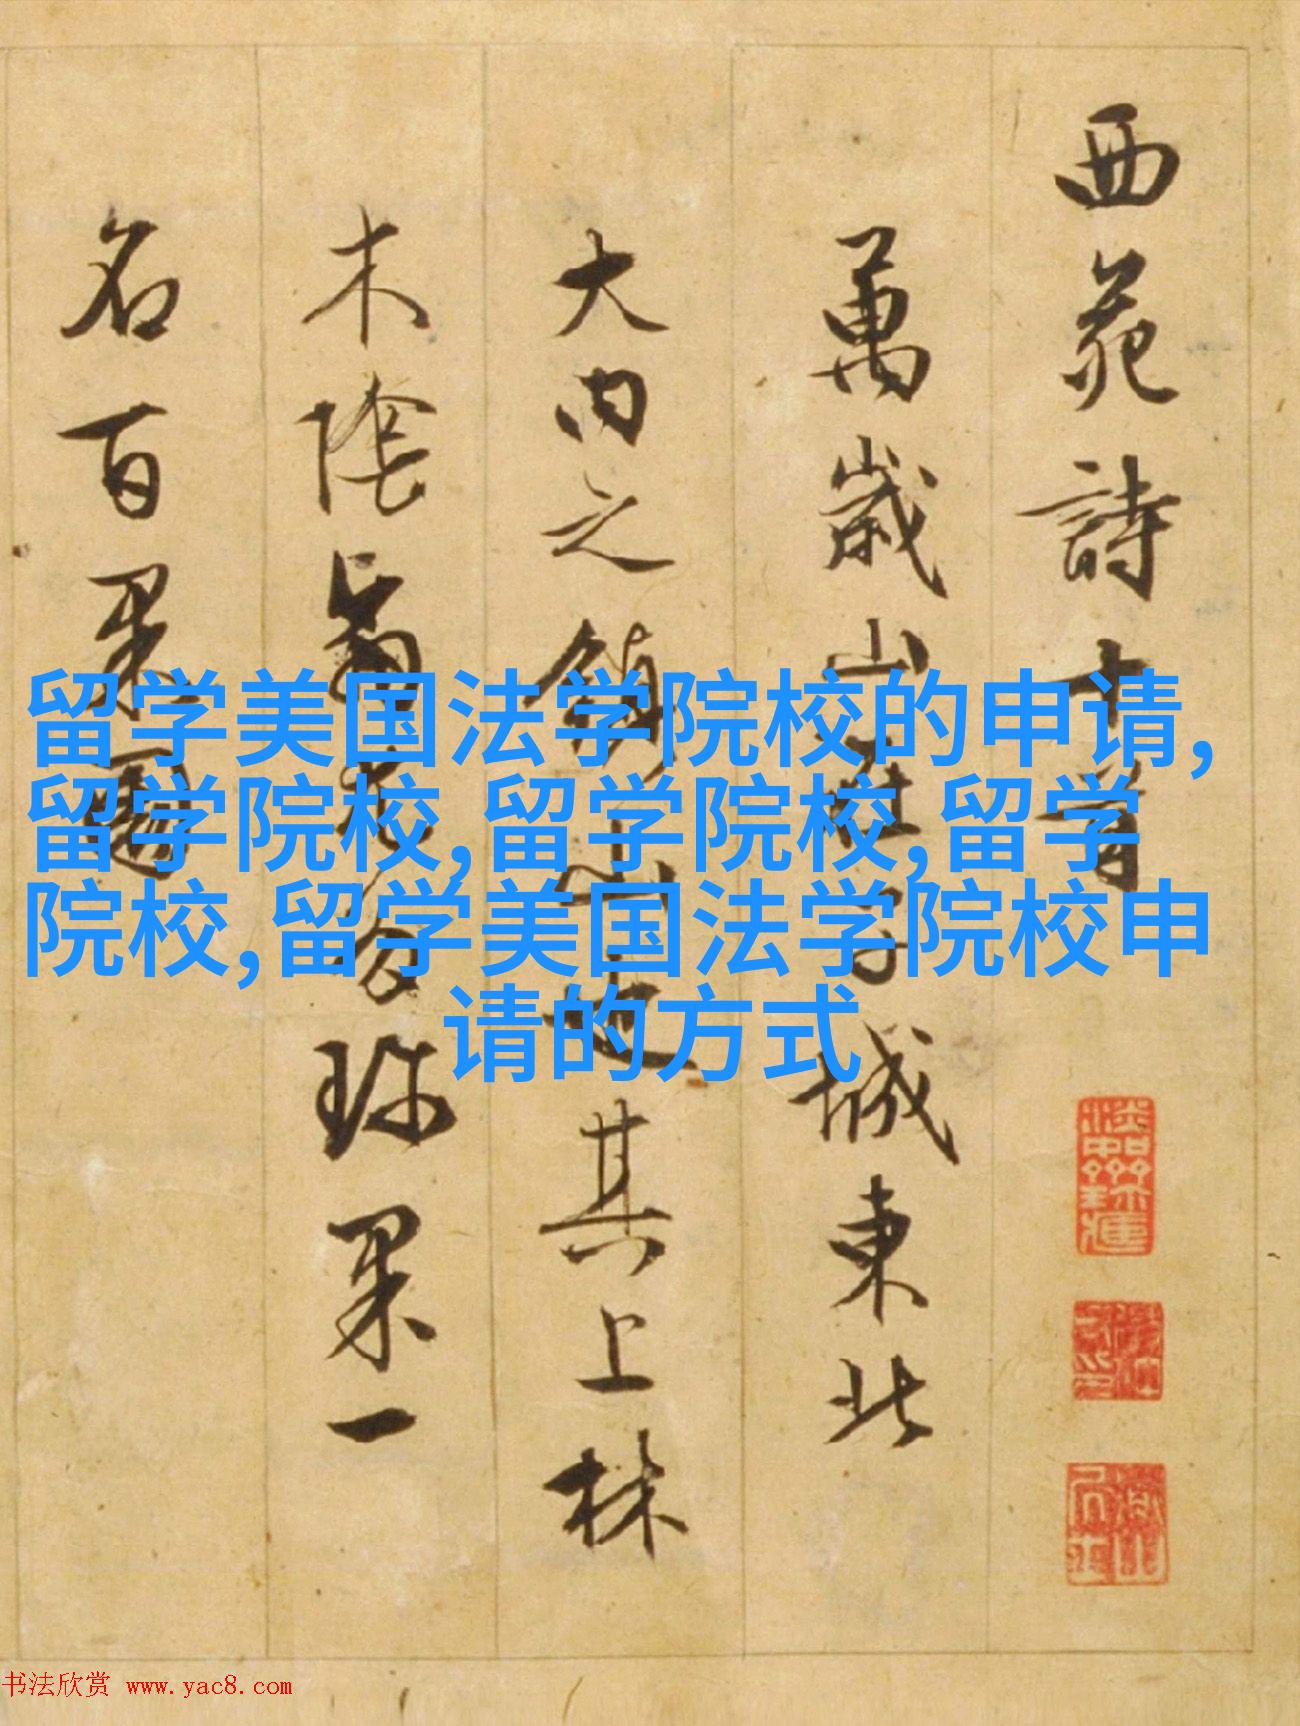 西苑詩十首
萬歲山在子城東北
大內之鎮山也其上林
木陰翳尤多珍果一
名百果園
留学美国法学院校的申请,
留学院校,留学院校,留学
院校,留学美国法学院校申
请的方式
书法欣赏 www.yac8.com